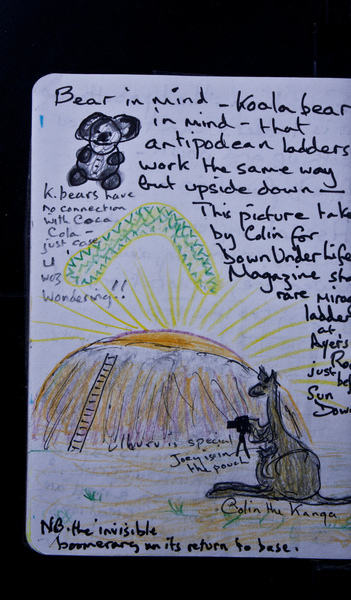 Bear in mind - Koala bear
in mind - that
antipodean ladders
work the same way
but upside down -
K. bears have
no connection
with Coca
Cola -
just case
u
woz
Wondering!!
This picture take
by Colin for
DownUnderLife
Magazine sho
rare Mirag
ladder
at
Ayers
Ro
just
be
Sun
Dow
Uluru is special
Joey is in
the pouch
Colin the Kanga
NB. the invisible
boomerang on its return to base.